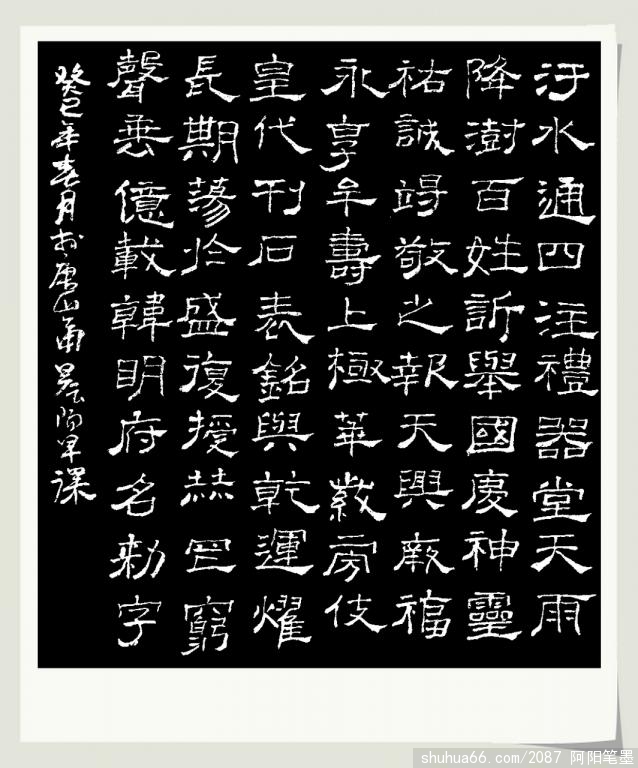 汙水通四注禮器堂天雨
降澍百姓訢舉國慶神靈
祐誠竭敬之報天興厥福
永享牟壽上極華紫旁伎
皇代刊石表銘與乾運燿
長期蕩於盛復授赫罔窮
聲垂億載韓明府名勑字
癸巳年春月於唐山早課
shuhua66.com/2087 阿阳笔墨